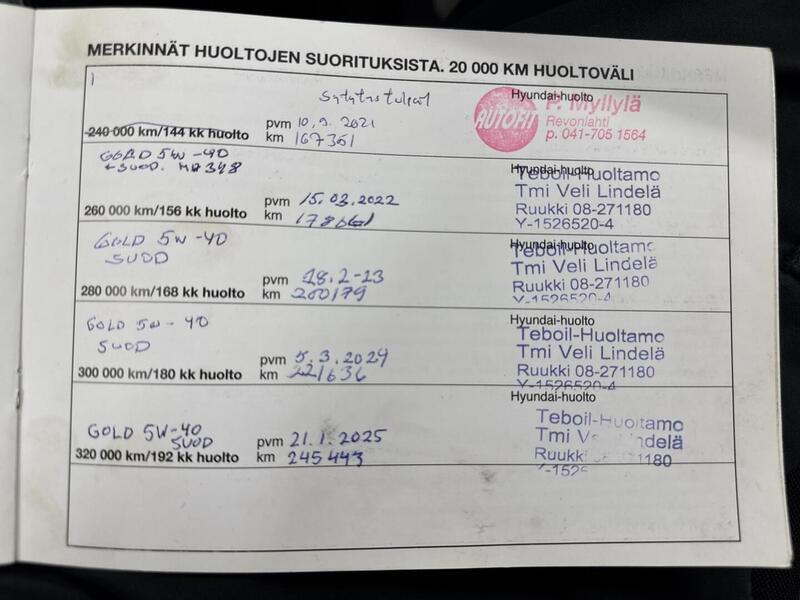 MERKINNÄT HUOLTOJEN SUORITUKSISTA. 20 000 KM HUOLTOVÄLI
Hyundai-huolto
AUTOFIT
P. Myllylä
Revonlahti
p. 041-705 1564
pvm 10.9.2021
240 000 km/144 kk huolto
km 167361
GOLD 5W-40
+ SUOD.
Hyundai-huolto
Teboil-Huoltamo
Tmi Veli Lindelä
Ruukki 08-271180
Y-1526520-4
pvm 15.03.2022
260 000 km/156 kk huolto
km
GOLD 5W-40
SUOD
Hyundai-huolto
Teboil-Huoltamo
Tmi Veli Lindelä
Ruukki 08-271180
Y-1526520-4
pvm 28.2-23
280 000 km/168 kk huolto
km 200179
GOLD 5W-40
SUOD
Hyundai-huolto
Teboil-Huoltamo
Tmi Veli Lindelä
Ruukki 08-271180
Y-1526520-4
pvm 5.3.2024
300 000 km/180 kk huolto
km 221636
GOLD 5W-40
SUOD
Hyundai-huolto
Teboil-Huoltamo
Tmi
Ruukki
pvm 21.1.2025
320 000 km/192 kk huolto
km 245443